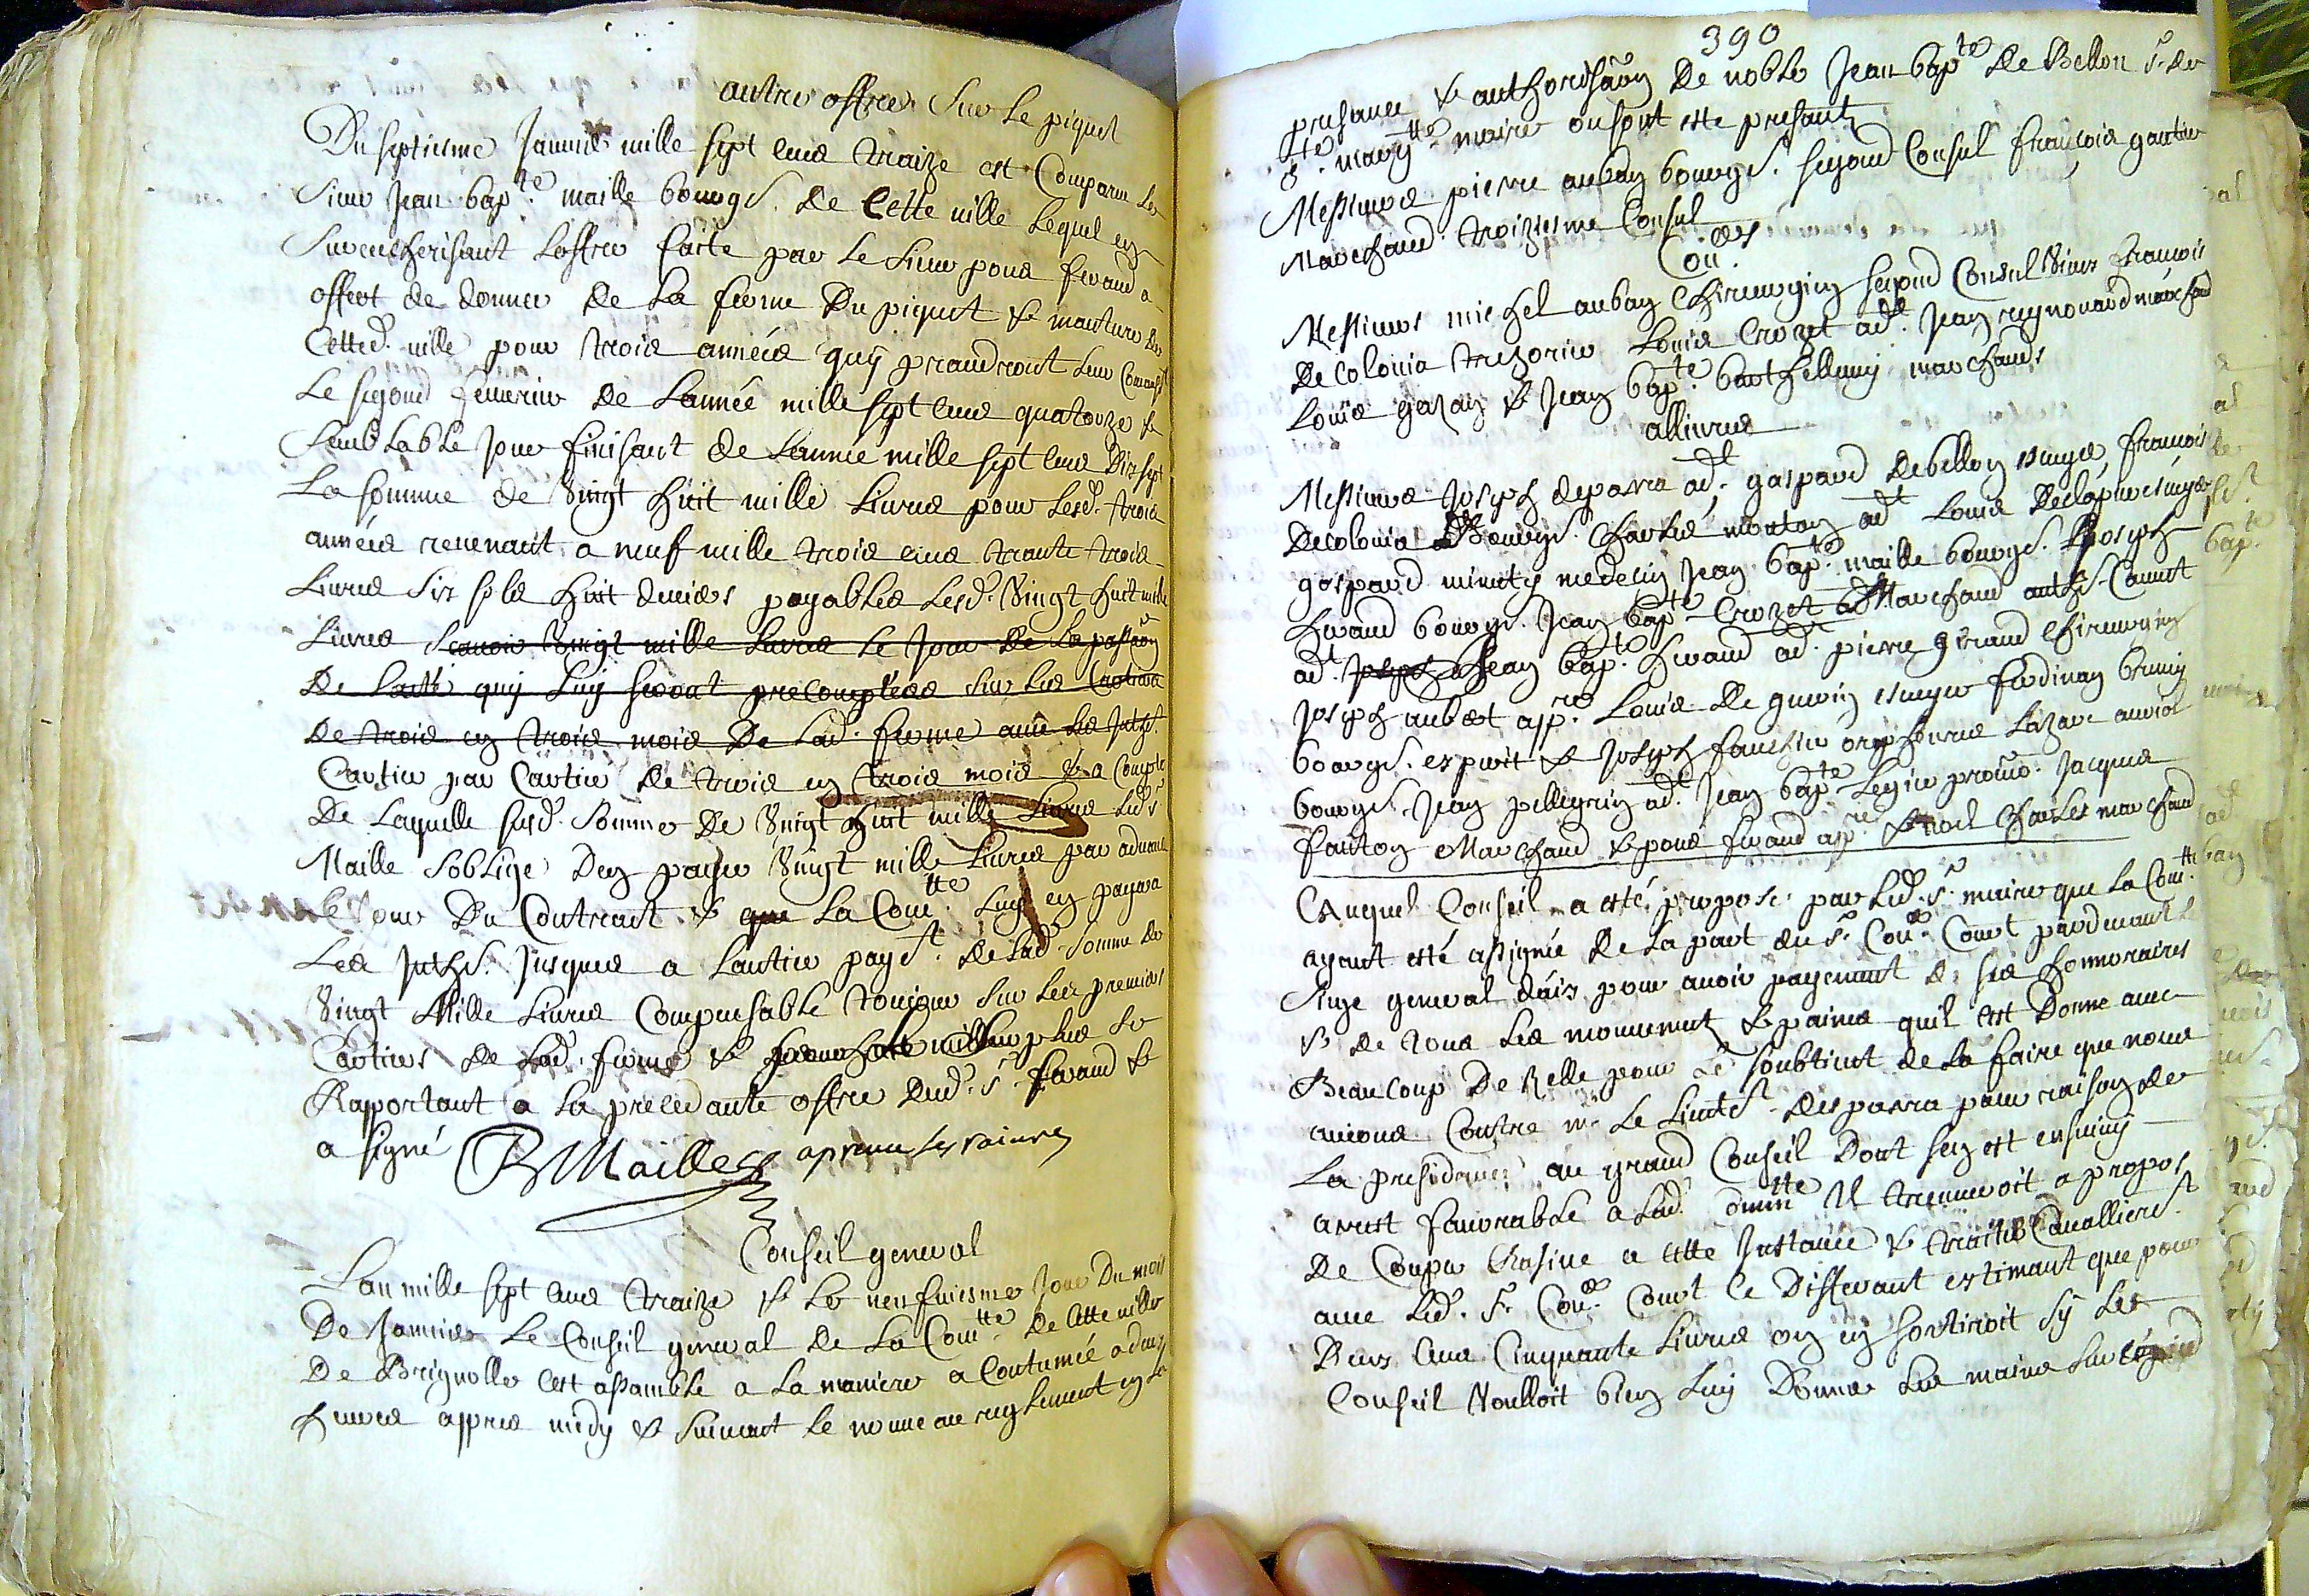 autre offre sur le piquet
Du septiesme Janvier mille sept cens traize est comparu le
sieur Jean bap.te maille bourgs. de Cette ville lequel en
surencherisant loffre faite par le sieur pons feraud a
offert de donner de la ferme du piquet & mouture de
Cetted. ville pour trois années quy prandront leur
le segond feuvrier de lannée mille sept cens quatorze &
semblable jour finisant de lannee mille sept cens dix sept
La somme de vingt huit mille livres pour lesd. trois
années revenant a neuf mille trois cens trante trois
livres six sols huit deniers payables lesd. vingt huit mille
livres scavoir vingt mille livres le jour de la passaon
de lacte quy luy seront precomptées sur les Cartiers
de trois en trois mois de lad. ferme avec les inthts.
Cartier par Cartier de trois en trois mois & a Compte
de laquelle susd. somme de vingt huit mille livres led. sr
Maille soblige den payer vingt mille livres par advance
le jour du Contract & que la Com.tte luy en payera
les inthts. jusques a lantier payet. de lad. somme de
vingt Mille livres Compensable toujour sur les premiers
Cartiers de lad. ferme & plus se
Rapportant a la precedante offre dud. sr. feraud &
a signé BMaille
Conseil general
Lan mille sept cens traize & le neufviesme jour du mois
de Janvier le Conseil general de la Com.tte de Cette ville
de Brignolle cest assamble a la maniere a Coutumée a deux
heures appres midy & suivant le nouveau reglement en la
390
presance & authorisaon de noble Jean bap.te de Bellon sr. de
ste. marg.tte maire ou sont este presants
Messieurs pierre auban bourgs. segond Consul francois gautier
Marchand troizieme Consul
Con.ers
Messieurs michel auban Chirurgien segond Consul vieux francois
de colonia trezorier Louis Crozet adt. Jean reynouard marchand
Louis gazan & Jean bap.te barthellemy marchands
allivres
Messieurs Joseph desparra adt. gaspard debellon escuyer francois
decolonia bourgs. Charles monton adt Louis
gaspard minuty medecin Jean bap.te maille bourgs. Joseph
feraud bourgs. Jean bap.te Crozet Marchand anths. Canut
adt. Jean bap.te feraud adt. pierre giraud Chirurgien
Joseph aubert app.re Louis de guerin escuyer ferdinan brunij
bourgs. esprit & Joseph fauchier orphevres Lazare auriol
bourgs. Jean pellegrin adt. Jean bap.te Legier procur. Jacques
fanton Marchand & pons feraud app.re & noel Charles marchand
Auquel Conseil a esté proposé par led. sr. maire que la Com.tte
ayant esté assignée de la part du sr. Con.er Court
siege general daix pour avoir payement de ses honnoraires
& de tous les mouvements & paines quil cest donne avec
Beaucoup de zelle pour le soubtient de la faire que nous
avions Contre mr. le lieut.t desparra pour raison de
La presidance au grand Conseil dont sen est ensuivy
arrest favorable a lad. Comm.tte Il treuveroit a propos
de Couper Rasine a cette Instance & traiter Cavallierem.t
avec led. sr. Con.er Court ce differant estimant que pour
Deux Cens Cinquante livres on en sortiroit sy le
Conseil Voulloit bien luy donner les mains sur